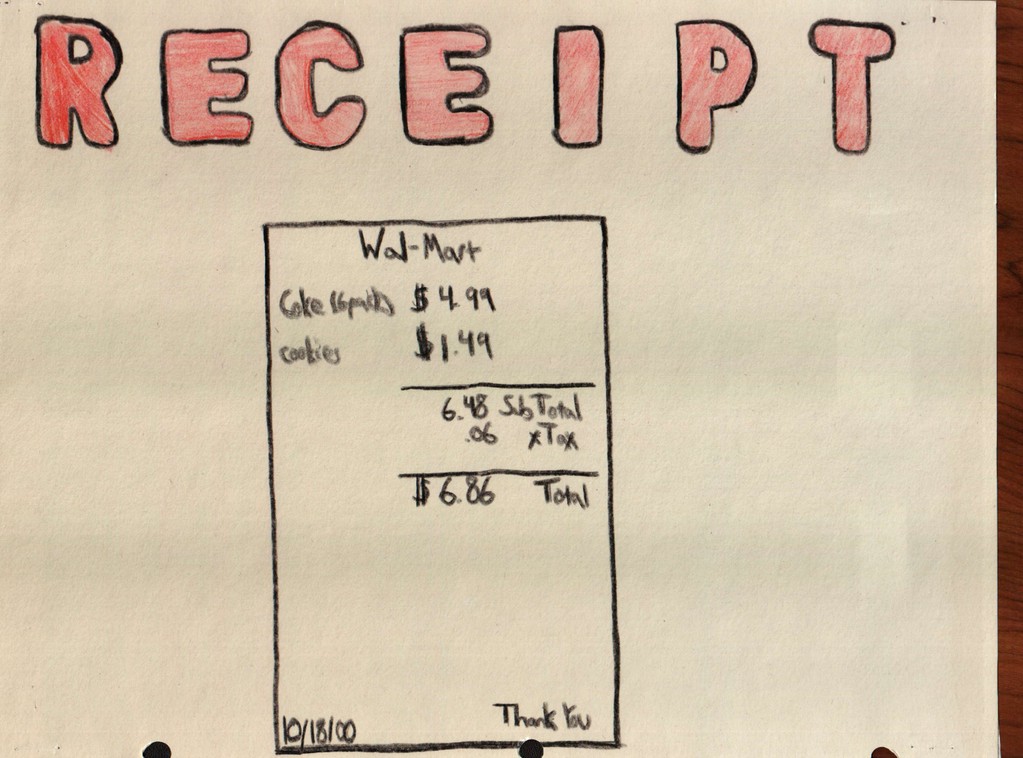 RECEIPT
Wal-Mart
Coke (6pack) $ 4.99
cookies $1.49
6.48 Sub Total
.06 x Tax
$ 6.86 Total
Thank You
10/18/00